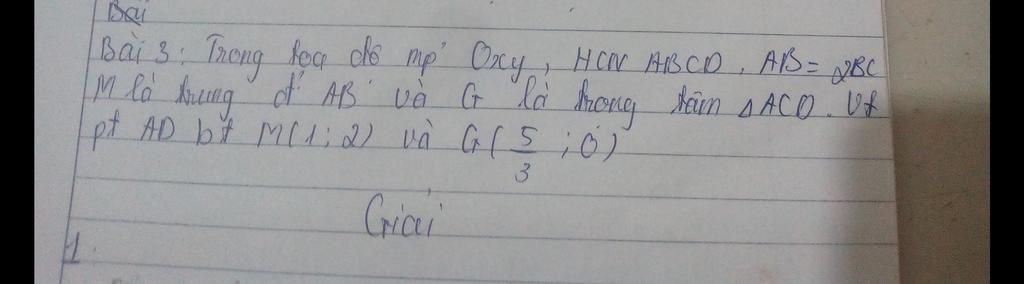 Bài
Bài 3: Trong toạ độ mp Oxy, HCN ABCD. AB = 2BC
M là trung đ' AB và G là trong tâm ΔACD. Vt
pt AD bt M(1; 2) và G(5/3; 0)
Giải
1.